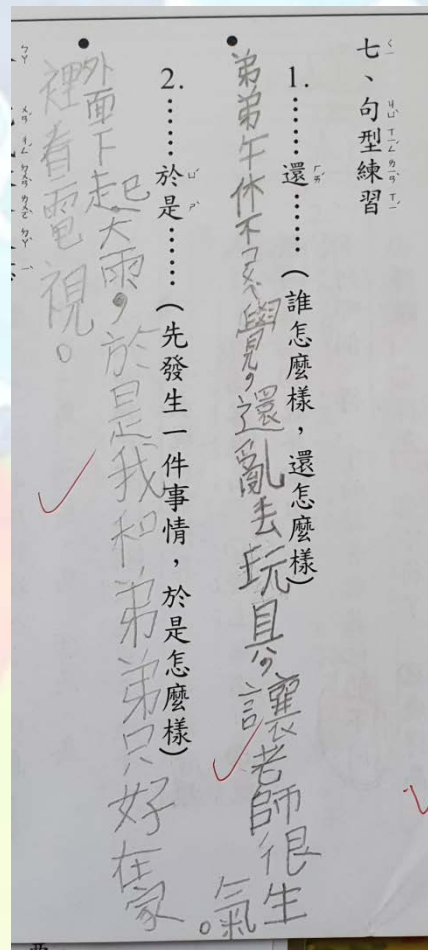 七、句型練習
1.……還……(誰怎麼樣,還怎麼樣)
弟弟午休不ㄕㄨㄟˋ覺,還亂丟玩具,讓老師很生
氣。
2.……於是……(先發生一件事情,於是怎麼樣)
外面下起大雨,於是我和弟弟只好在家
裡看電視。